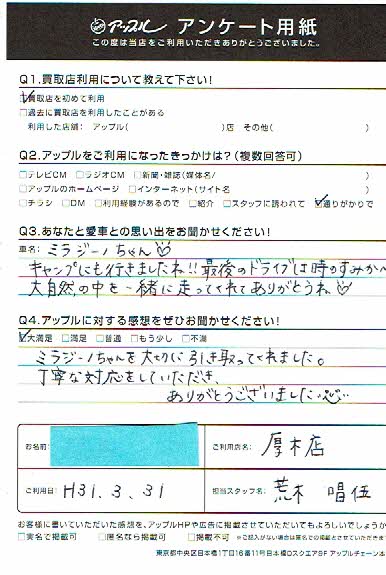 アップル アンケート用紙
この度は当店をご利用いただきありがとうございました。
Q1.買取店利用について教えて下さい!
☑買取店を初めて利用
□過去に買取店を利用したことがある
利用した店舗: アップル( )店 その他( )
Q2.アップルをご利用になったきっかけは?(複数回答可)
□テレビCM □ラジオCM □新聞・雑誌(媒体名/ )
□アップルのホームページ □インターネット(サイト名 )
□チラシ □DM □利用経験があるので □紹介 □スタッフに誘われて ☑通りがかりで
Q3.あなたと愛車との思い出をお聞かせください!
車名: ミラジーノちゃん♡
キャンプにも行きましたね!!最後のドライブは時のすみかへ
大自然の中を一緒に走ってくれてありがとうね♡
Q4.アップルに対する感想をぜひお聞かせください!
☑大満足 □満足 □普通 □もう少し □不満
ミラジーノちゃんを大切に引き取ってくれました。
丁寧な対応をしていただき、
ありがとうございました
お名前:
ご利用店名: 厚木店
ご利用日: H31.3.31
担当スタッフ名: 荒木 唱伍
お客様に書いていただいた感想を、アップルHPや広告に掲載させていただいてもよろしいでしょうか
□実名で掲載可 □匿名なら掲載可 □掲載不可 ※ご記入がない場合は匿名での掲載とさせていただきます
東京都中央区日本橋1丁目16番11号日本橋Dスクエア5F アップルチェーン本